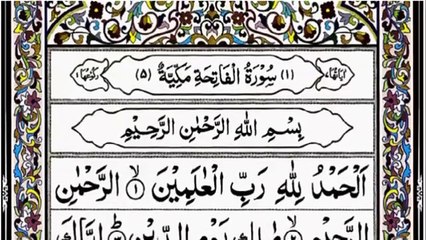 اٰیاتها ۷ (۱) سُوْرَةُ الْفَاتِحَةِ مَكِّيَّةٌ (۵) رکوعها ۱
بِسْمِ اللّٰهِ الرَّحْمٰنِ الرَّحِيْمِ
اَلْحَمْدُ لِلّٰهِ رَبِّ الْعٰلَمِيْنَ ۙ﴿۱﴾ الرَّحْمٰنِ
الرَّحِيْمِ ۙ﴿۲﴾ مٰلِكِ يَوْمِ الدِّيْنِ ؕ﴿۳﴾ اِيَّاكَ